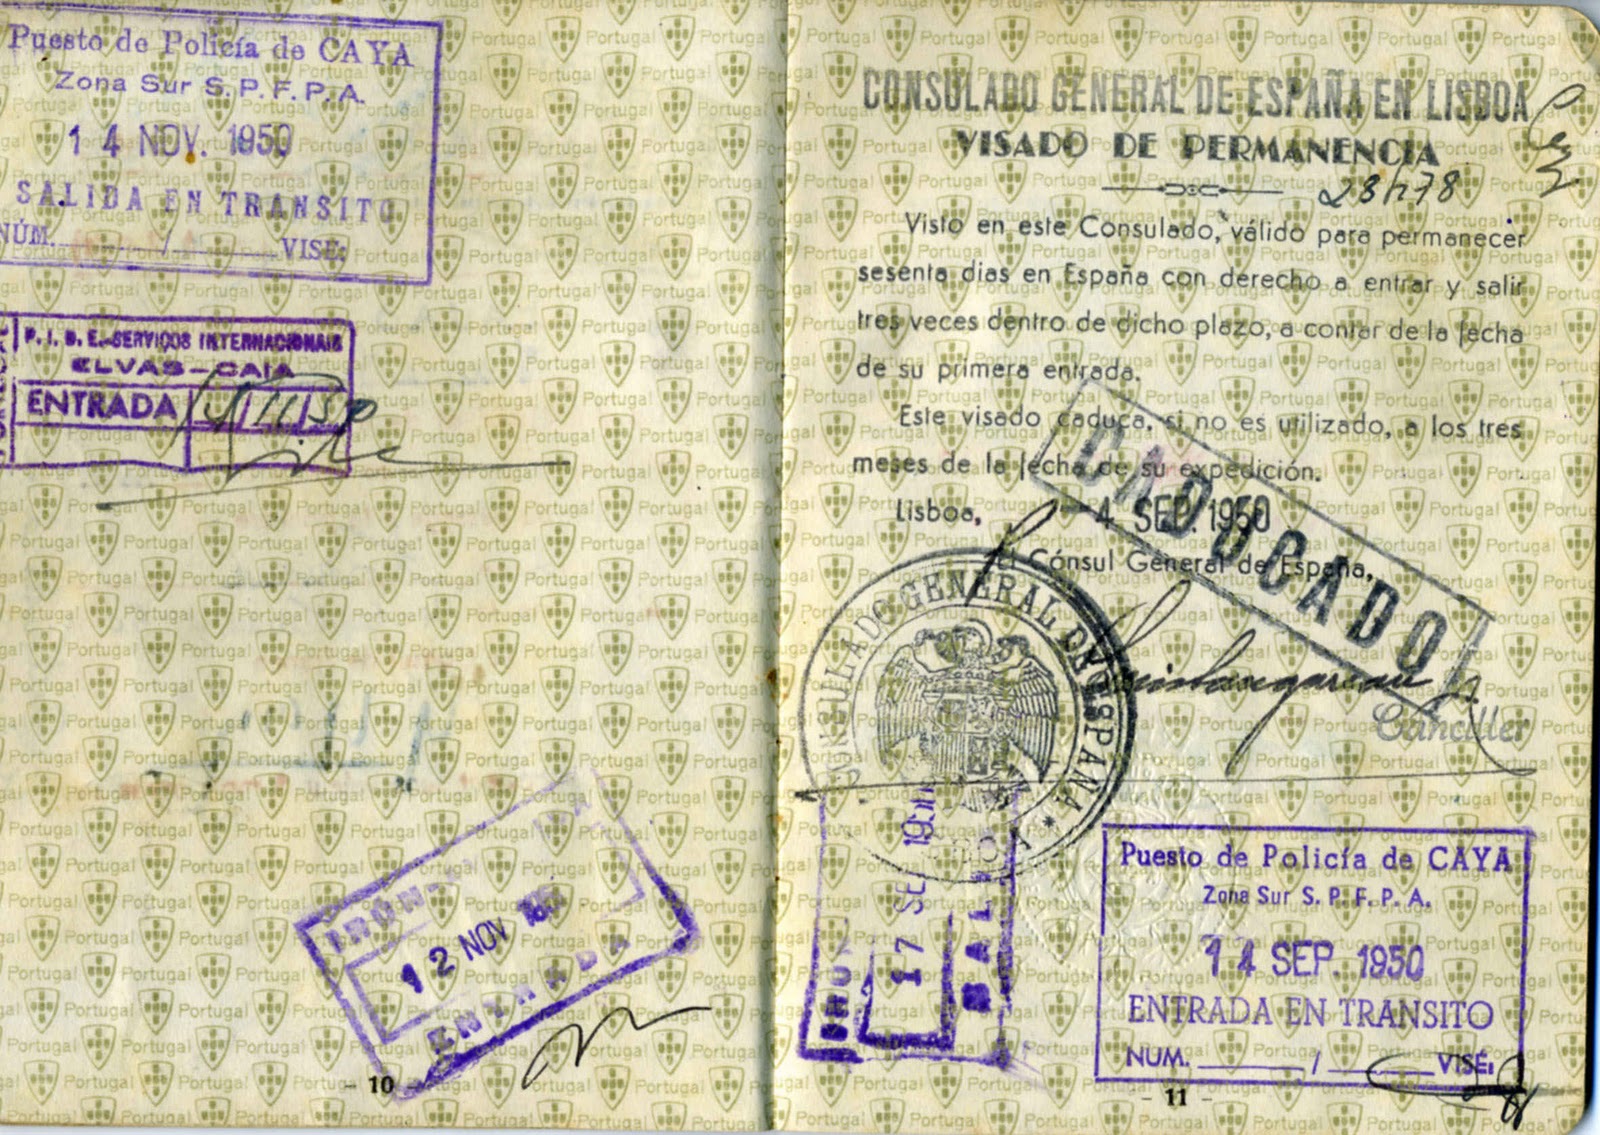 Puesto de Policía de CAYA
Zona Sur S. P. F. P. A.
14 NOV. 1950
SALIDA EN TRANSITO
NÚM. / VISÉ:
P. I. D. E.-SERVIÇOS INTERNACIONAIS
ELVAS-CAIA
ENTRADA 14/11/50
IRUN
12 NOV
ENTRADA
- 10 -
CONSULADO GENERAL DE ESPAÑA EN LISBOA
VISADO DE PERMANENCIA
Visto en este Consulado, válido para permanecer
sesenta dias en España con derecho a entrar y salir
tres veces dentro de dicho plazo, a contar de la fecha
de su primera entrada.
Este visado caduca, si no es utilizado, a los tres
meses de la fecha de su expedición.
Lisboa, - 4 SEP. 1950
El Cónsul General de España,
CADUCADO
Canciller
CONSULADO GENERAL DE ESPAÑA
17 SE
Puesto de Policía de CAYA
Zona Sur S. P. F. P. A.
14 SEP. 1950
ENTRADA EN TRANSITO
NUM. / VISÉ:
- 11 -